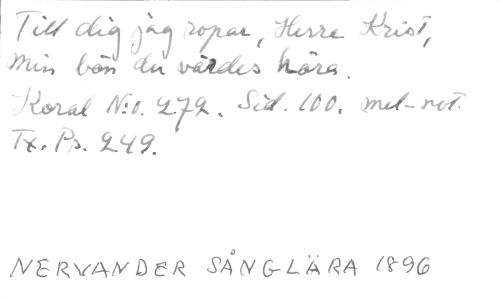 Till dig jag ropar, Herre Krist,
Min bön du värdes höra.
Koral N:o. 272. Sid. 100. mel-not.
Tx. Ps. 249.
NERVANDER SÅNGLÄRA 1896